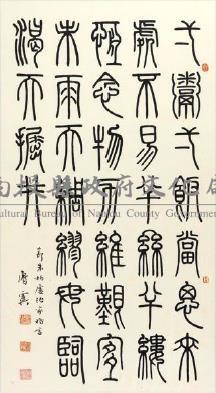 弌鬻弌飯當思來
處不易半絲半縷
恆念物力維艱宜
未雨而綢繆毋臨
渴而掘井
節朱柏廬治家格言
南投縣政府文化局
Cultural Bureau of Nantou County Government